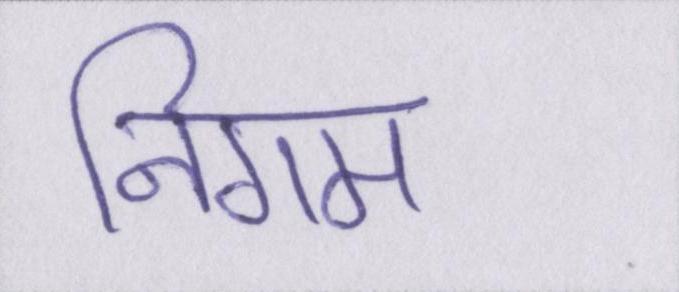 निगम